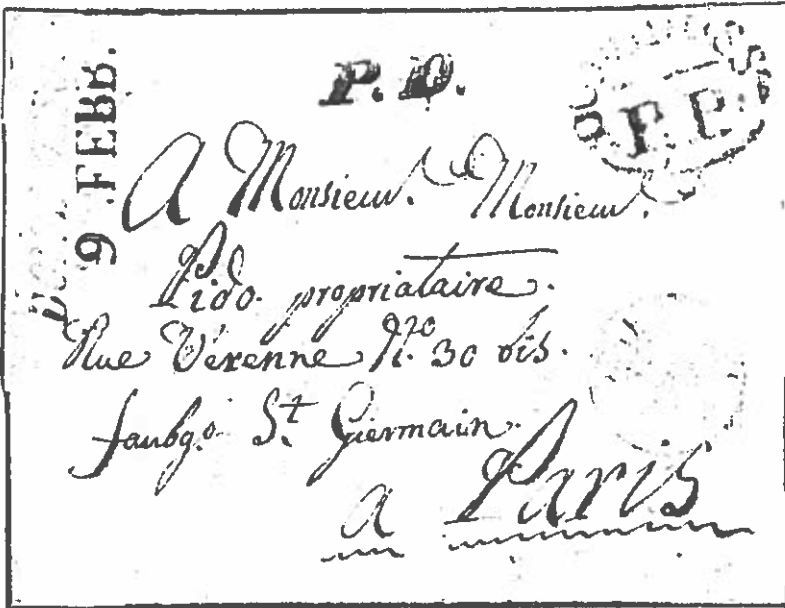 P. D.
P. P.
9 .FEBB.
A Monsieur. Monsieur.
Pido. propriataire.
Rue Verenne N.º 30 bis.
faubg.º S.t Giermain.
a Paris